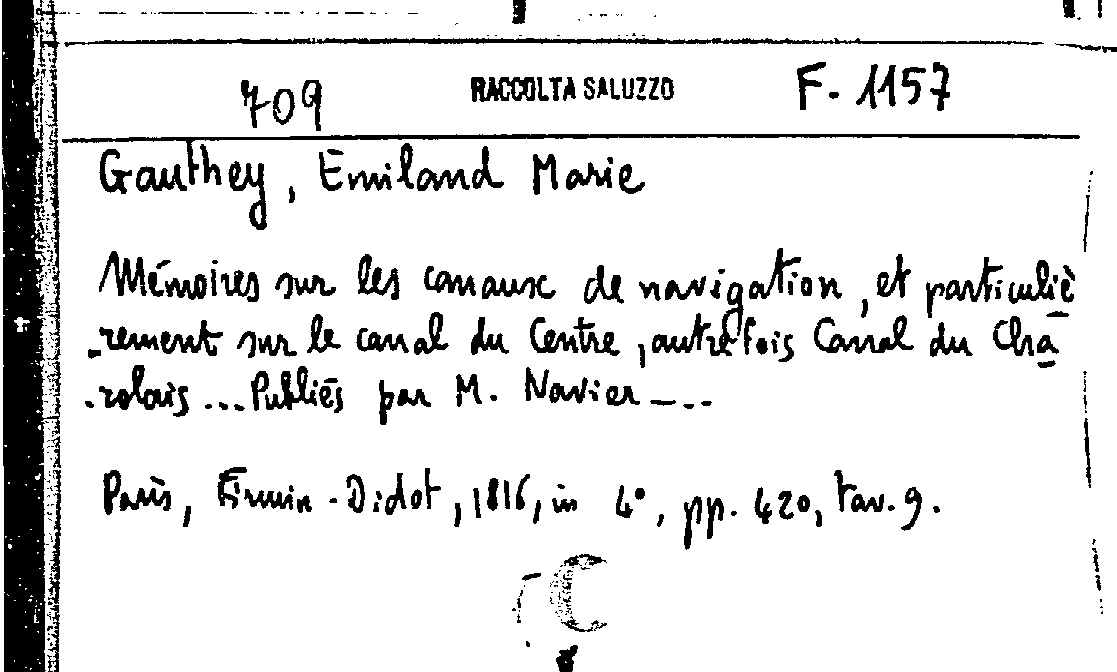 709 RACCOLTA SALUZZO F. 1157
Gauthey, Emiland Marie
Mémoires sur les canaux de navigation, et particuliè
rement sur le canal du Centre, autrefois Canal du Cha
rolais ... Publiés par M. Navier ---
Paris, Firmin-Didot, 1816, in 4°, pp. 420, tav. 9.